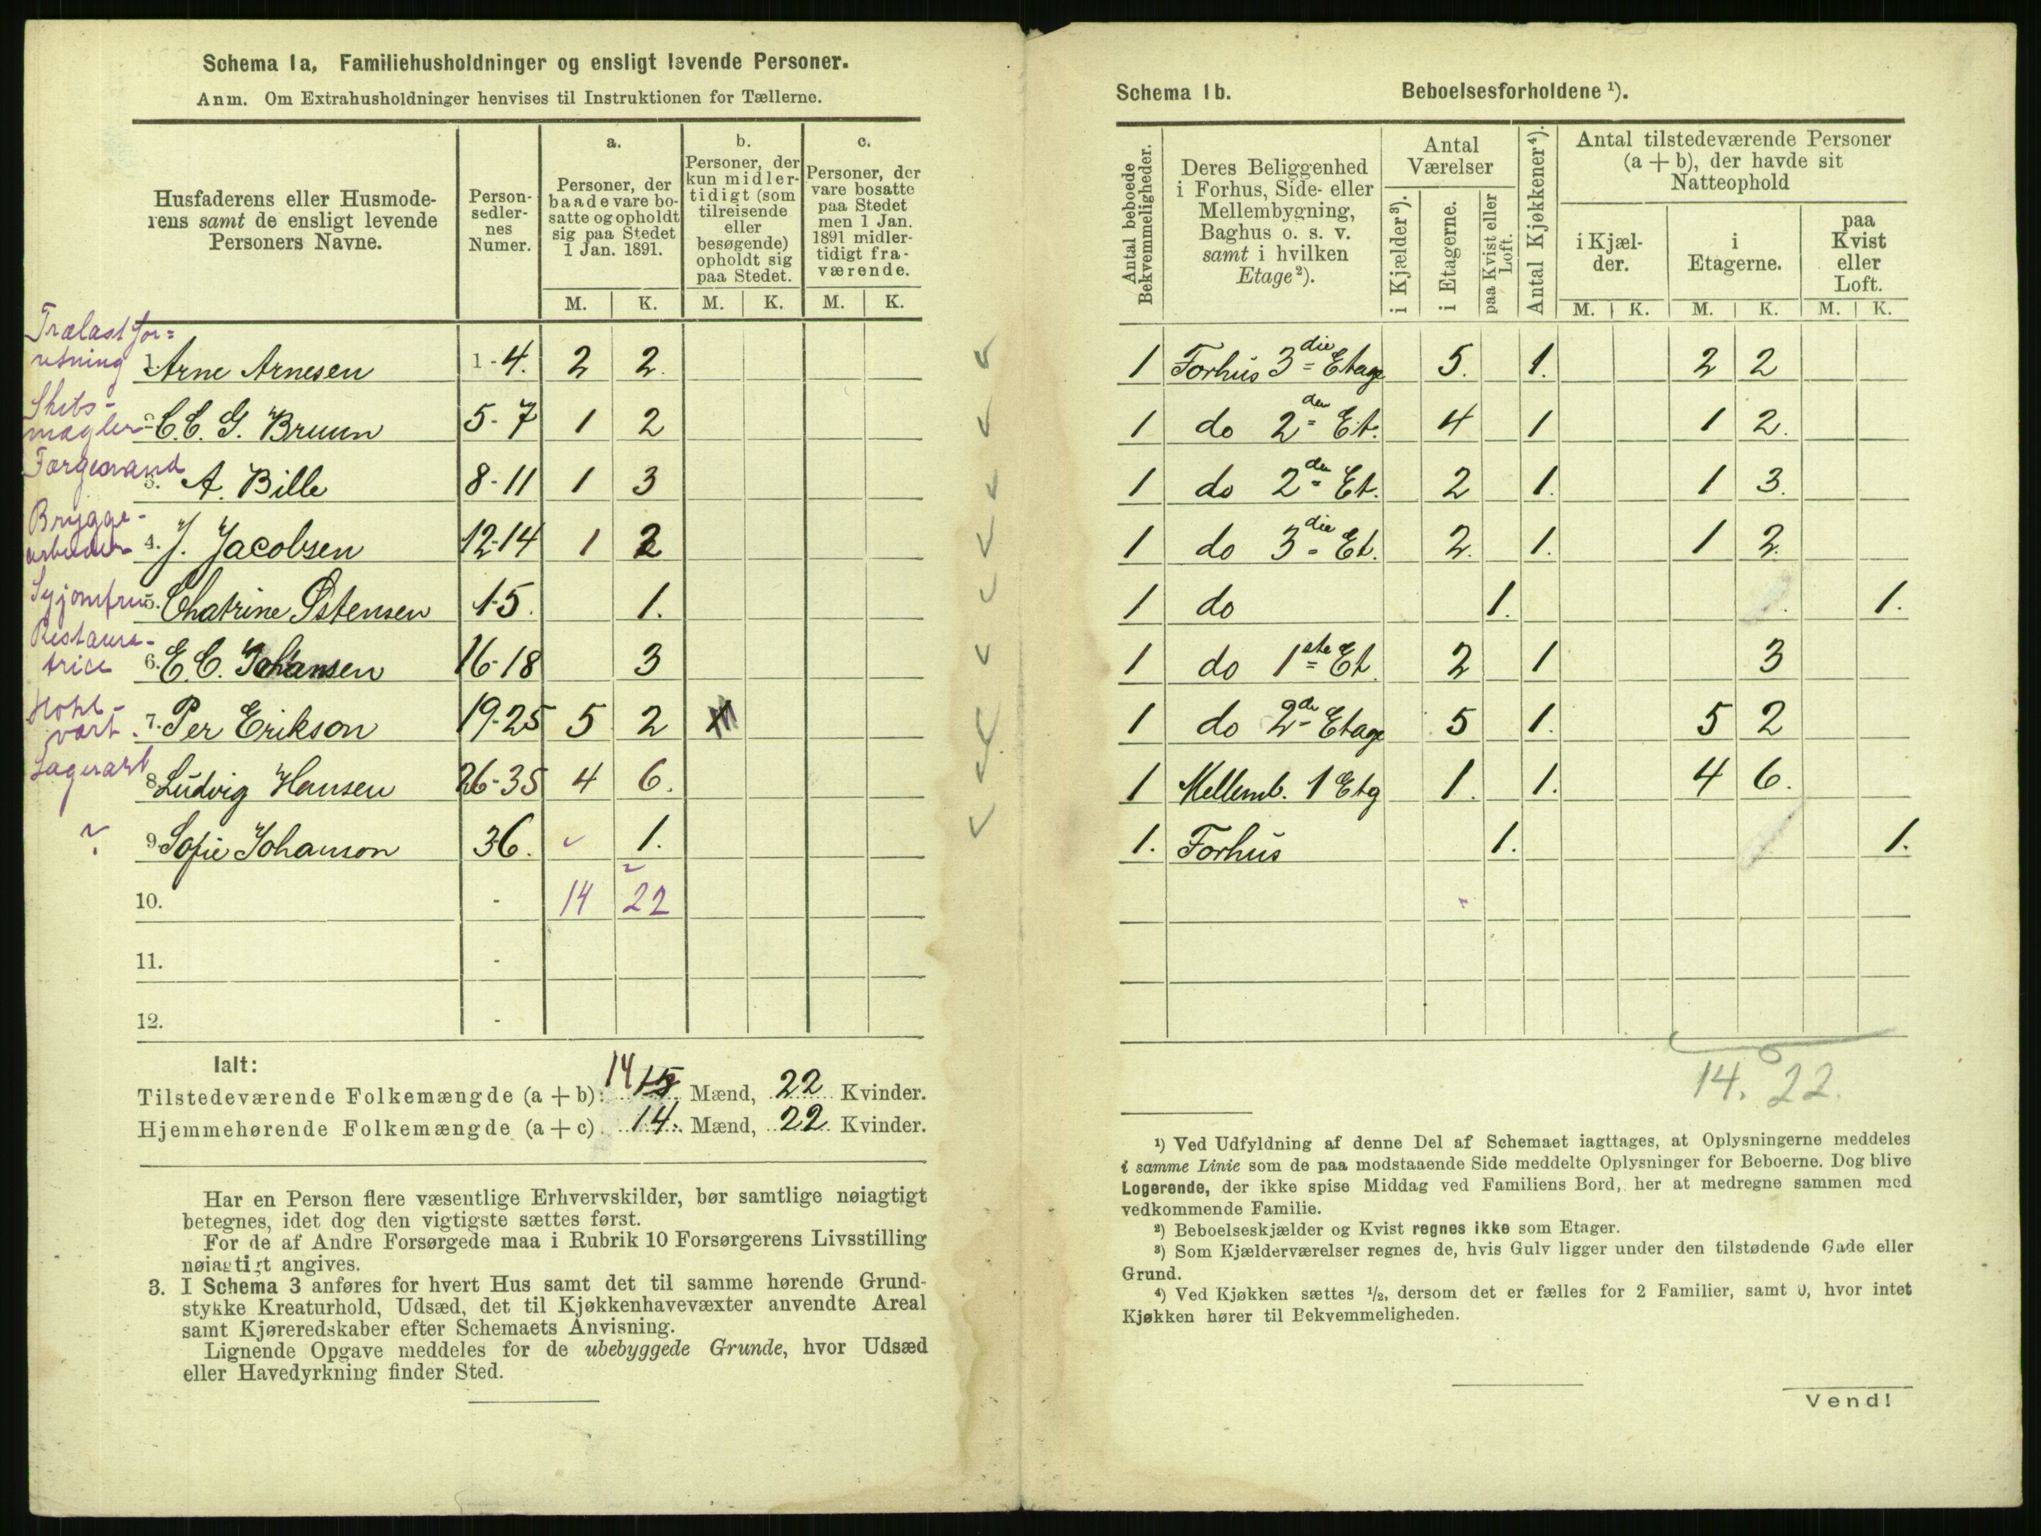 Schema 1a, Familiehusholdninger og ensligt levende Personer.
Anm. Om Extrahusholdninger henvises til Instruktionen for Tællerne.
Husfaderens eller Husmode-
rens samt de ensligt levende
Personers Navne.
Person-
sedler-
nes
Numer.
a.
Personer, der
baade vare bo-
satte og opholdt
sig paa Stedet
1 Jan. 1891.
b.
Personer, der
kun midler-
tidigt (som
tilreisende
eller
besøgende)
opholdt sig
paa Stedet.
c.
Personer, der
vare bosatte
paa Stedet
men 1 Jan.
1891 midler-
tidigt fra-
værende.
M. K. M. K. M. K.
Trælastfor=
retning 1. Arne Arnesen 1-4. 2 2.
Skibs-
mægler 2. C. C. G. Bruun 5-7 1 2
Farvemand 3. A. Bille 8-11 1 3
Brygge-
arbeider 4. J. Jacobsen 12-14 1 2
Syjomfru 5. Chatrine Østensen 15. 1.
Restaura-
trice 6. E. C. Johansen 16-18 3
vært. 7. Per Erikson 19-25 5 2
8. Ludvig Hansen 26-35 4 6.
? 9. Sofie Johanson 36. 1.
10. - 14 22
11. -
12. -
Ialt:
Tilstedeværende Folkemængde (a + b): 14 15 Mænd, 22 Kvinder.
Hjemmehørende Folkemængde (a + c) 14. Mænd, 22 Kvinder.
Har en Person flere væsentlige Erhvervskilder, bør samtlige nøiagtigt
betegnes, idet dog den vigtigste sættes først.
For de af Andre Forsørgede maa i Rubrik 10 Forsørgerens Livsstilling
nøiagtigt angives.
3. I Schema 3 anføres for hvert Hus samt det til samme hørende Grund-
stykke Kreaturhold, Udsæd, det til Kjøkkenhavevæxter anvendte Areal
samt Kjøreredskaber efter Schemaets Anvisning.
Lignende Opgave meddeles for de ubebyggede Grunde, hvor Udsæd
eller Havedyrkning finder Sted.
Schema 1b. Beboelsesforholdene ¹).
Antal beboede
Bekvemmeligheder.
Deres Beliggenhed
i Forhus, Side- eller
Mellembygning,
Baghus o. s. v.
samt i hvilken
Etage ²).
Antal
Værelser
i Kjælder ³).
i Etagerne.
paa Kvist eller
Loft.
Antal Kjøkkener ⁴).
Antal tilstedeværende Personer
(a + b), der havde sit
Natteophold
i Kjæl-
der.
i
Etagerne.
paa
Kvist
eller
Loft.
M. K. M. K. M. K.
1 Forhus 3die Etage 5. 1. 2 2
1 do 2den Et. 4 1 1 2.
1 do 2den Et. 2 1. 1 3.
1 do 3die Et. 2. 1. 1 2
1 do 1. 1.
1 do 1ste Et 2 1 3
1 do 2de Etage 5 1. 5 2
1 Mellemb. 1 Etg 1. 1. 4 6.
1. Forhus 1. 1.
14. 22.
¹) Ved Udfyldning af denne Del af Schemaet iagttages, at Oplysningerne meddeles
i samme Linie som de paa modstaaende Side meddelte Oplysninger for Beboerne. Dog blive
Logerende, der ikke spise Middag ved Familiens Bord, her at medregne sammen med
vedkommende Familie.
²) Beboelseskjælder og Kvist regnes ikke som Etager.
³) Som Kjælderværelser regnes de, hvis Gulv ligger under den tilstødende Gade eller
Grund.
⁴) Ved Kjøkken sættes ½, dersom det er fælles for 2 Familier, samt 0, hvor intet
Kjøkken hører til Bekvemmeligheden.
Vend!